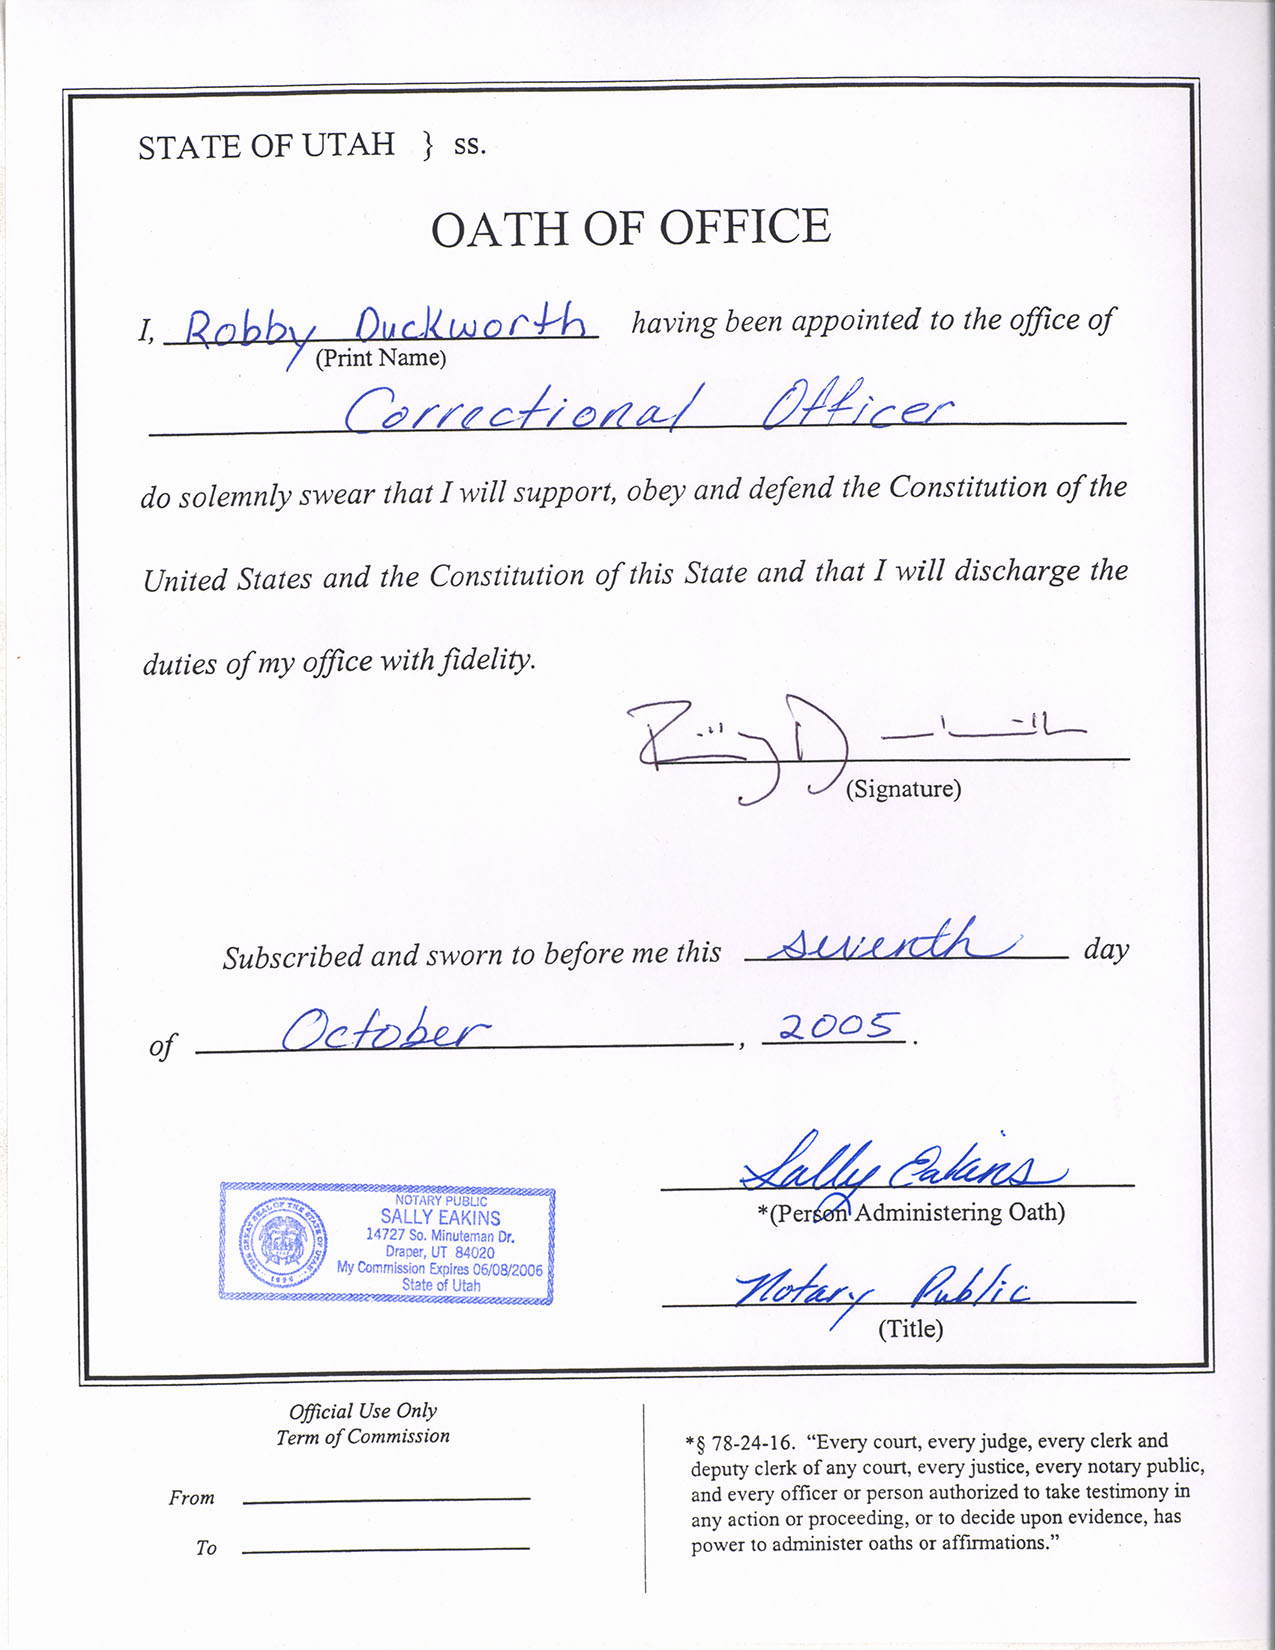 STATE OF UTAH } ss.
OATH OF OFFICE
I, Robby Duckworth having been appointed to the office of
(Print Name)
Correctional Officer
do solemnly swear that I will support, obey and defend the Constitution of the
United States and the Constitution of this State and that I will discharge the
duties of my office with fidelity.
(Signature)
Subscribed and sworn to before me this seventh day
of October, 2005.
Sally Eakins
*(Person Administering Oath)
Notary Public
(Title)
THE GREAT SEAL OF THE STATE OF UTAH
1896
NOTARY PUBLIC
SALLY EAKINS
14727 So. Minuteman Dr.
Draper, UT 84020
My Commission Expires 06/08/2006
State of Utah
Official Use Only
Term of Commission
From
To
*§ 78-24-16. “Every court, every judge, every clerk and
deputy clerk of any court, every justice, every notary public,
and every officer or person authorized to take testimony in
any action or proceeding, or to decide upon evidence, has
power to administer oaths or affirmations.”